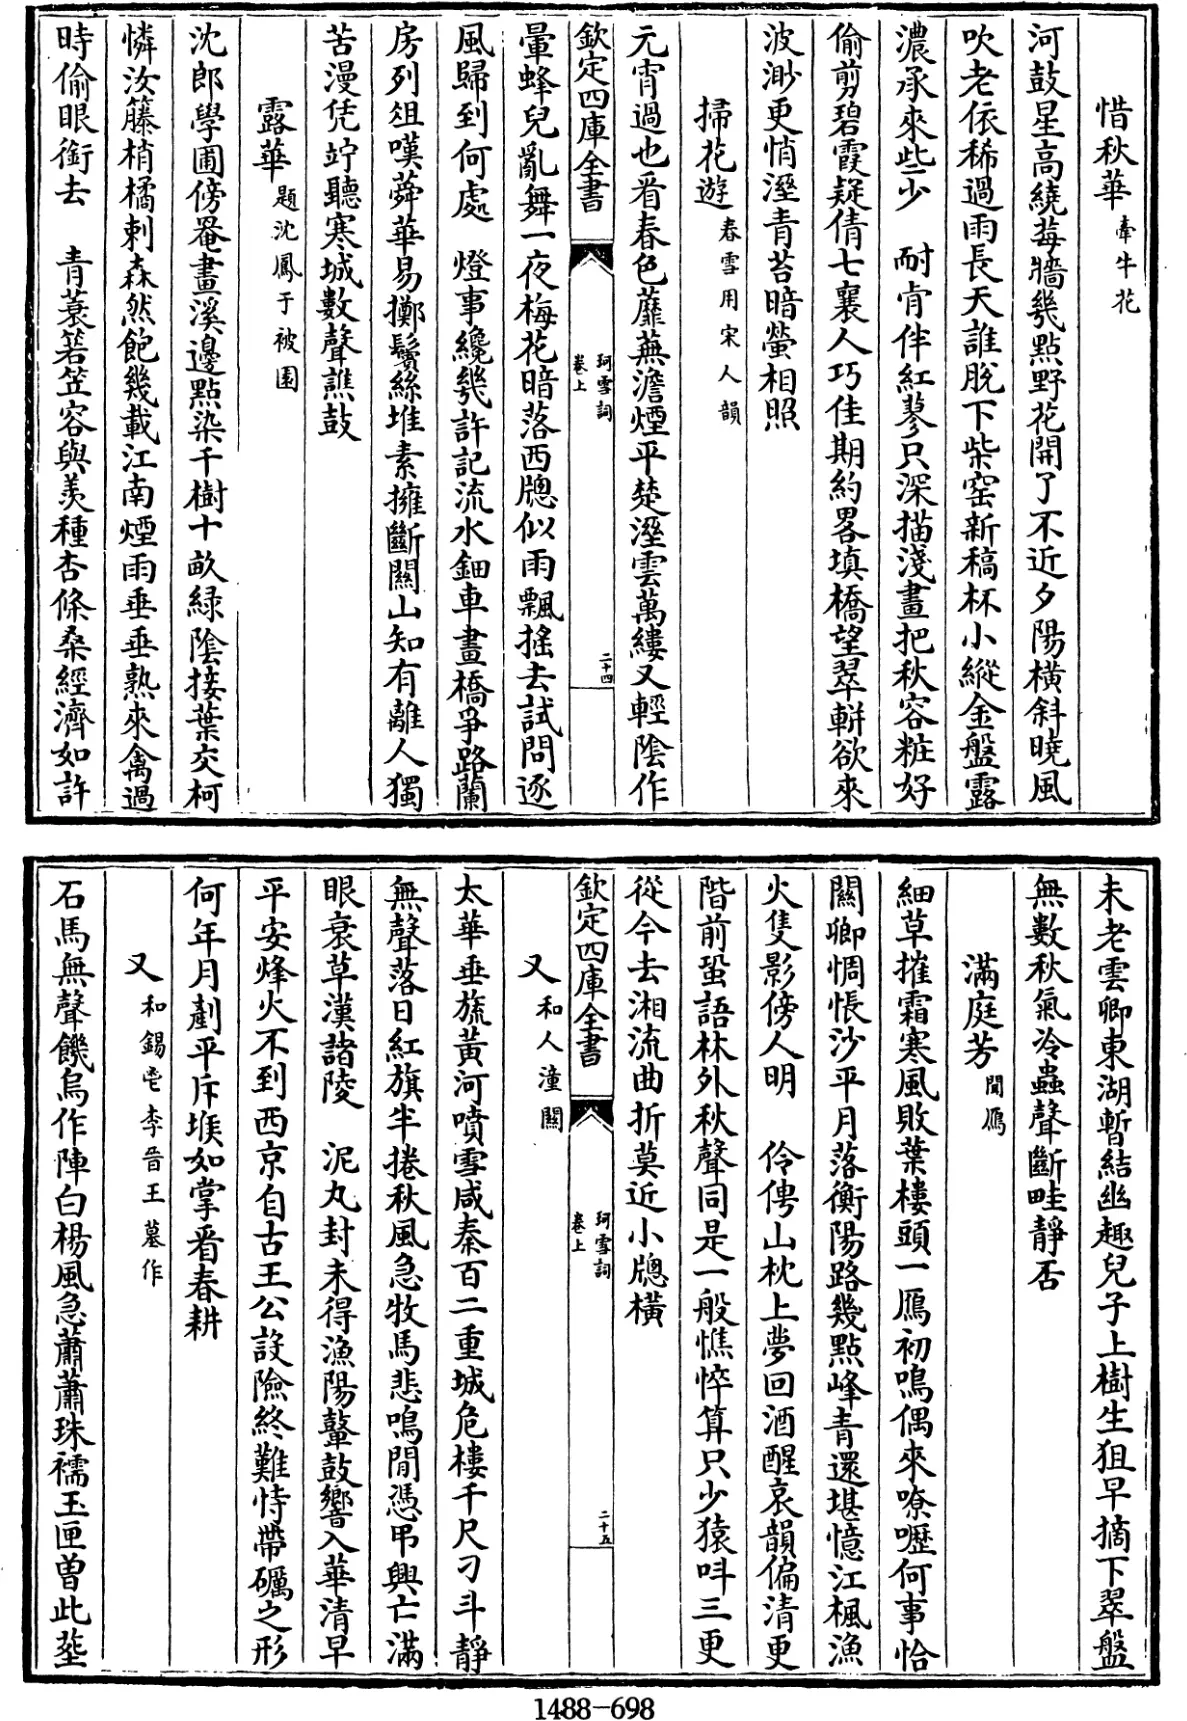 惜秋華 牽牛花
河鼓星高繞莓牆幾點野花開了不近夕陽橫斜曉風
吹老依稀過雨長天誰脫下柴窑新稿杯小縱金盤露
濃承來些少　耐肯伴紅蓼只深描淺畫把秋容粧好
偷剪碧霞疑倩七襄人巧佳期約畧填橋望翠軿欲來
波渺更悄溼青苔暗螢相照
掃花遊 春雪用宋人韻
元宵過也看春色蘼蕪澹煙平楚溼雲萬縷又輕陰作
欽定四庫全書
珂雪詞
卷上
二十四
暈蜂兒亂舞一夜梅花暗落西牕似雨飄搖去試問逐
風歸到何處　燈事纔幾許記流水鈿車畫橋爭路蘭
房列俎嘆蕣華易擲鬢絲堆素擁斷關山知有離人獨
苦漫凭竚聽寒城數聲譙鼓
露華 題沈鳳于被園
沈郎學圃傍罨畫溪邊點染千樹十畝緑陰接葉交柯
憐汝籐梢橘刺森然飽幾載江南煙雨垂垂熟來禽過
時偷眼銜去　青蓑箬笠容與羡種杏條桑經濟如許
未老雲卿東湖暫結幽趣兒子上樹生狙早摘下翠盤
無數秋氣冷蟲聲斷畦靜否
滿庭芳 聞鴈
細草摧霜寒風敗葉樓頭一鴈初鳴偶來嘹嚦何事恰
關卿惆悵沙平月落衡陽路幾點峰青還堪憶江楓漁
火隻影傍人明　伶俜山枕上夢回酒醒哀韻偏清更
階前蛩語林外秋聲同是一般憔悴算只少猿呌三更
從今去湘流曲折莫近小牕橫
欽定四庫全書
珂雪詞
卷上
二十五
又 和人潼關
太華垂旒黃河噴雪咸秦百二重城危樓千尺刁斗靜
無聲落日紅旗半捲秋風急牧馬悲鳴閒憑弔興亡滿
眼衰草漢諸陵　泥丸封未得漁陽鼙鼓響入華清早
平安烽火不到西京自古王公設險終難恃帶礪之形
何年月剷平斥堠如掌看春耕
又 和錫鬯李晉王墓作
石馬無聲饑烏作陣白楊風急蕭蕭珠襦玉匣曾此塟
1488-698